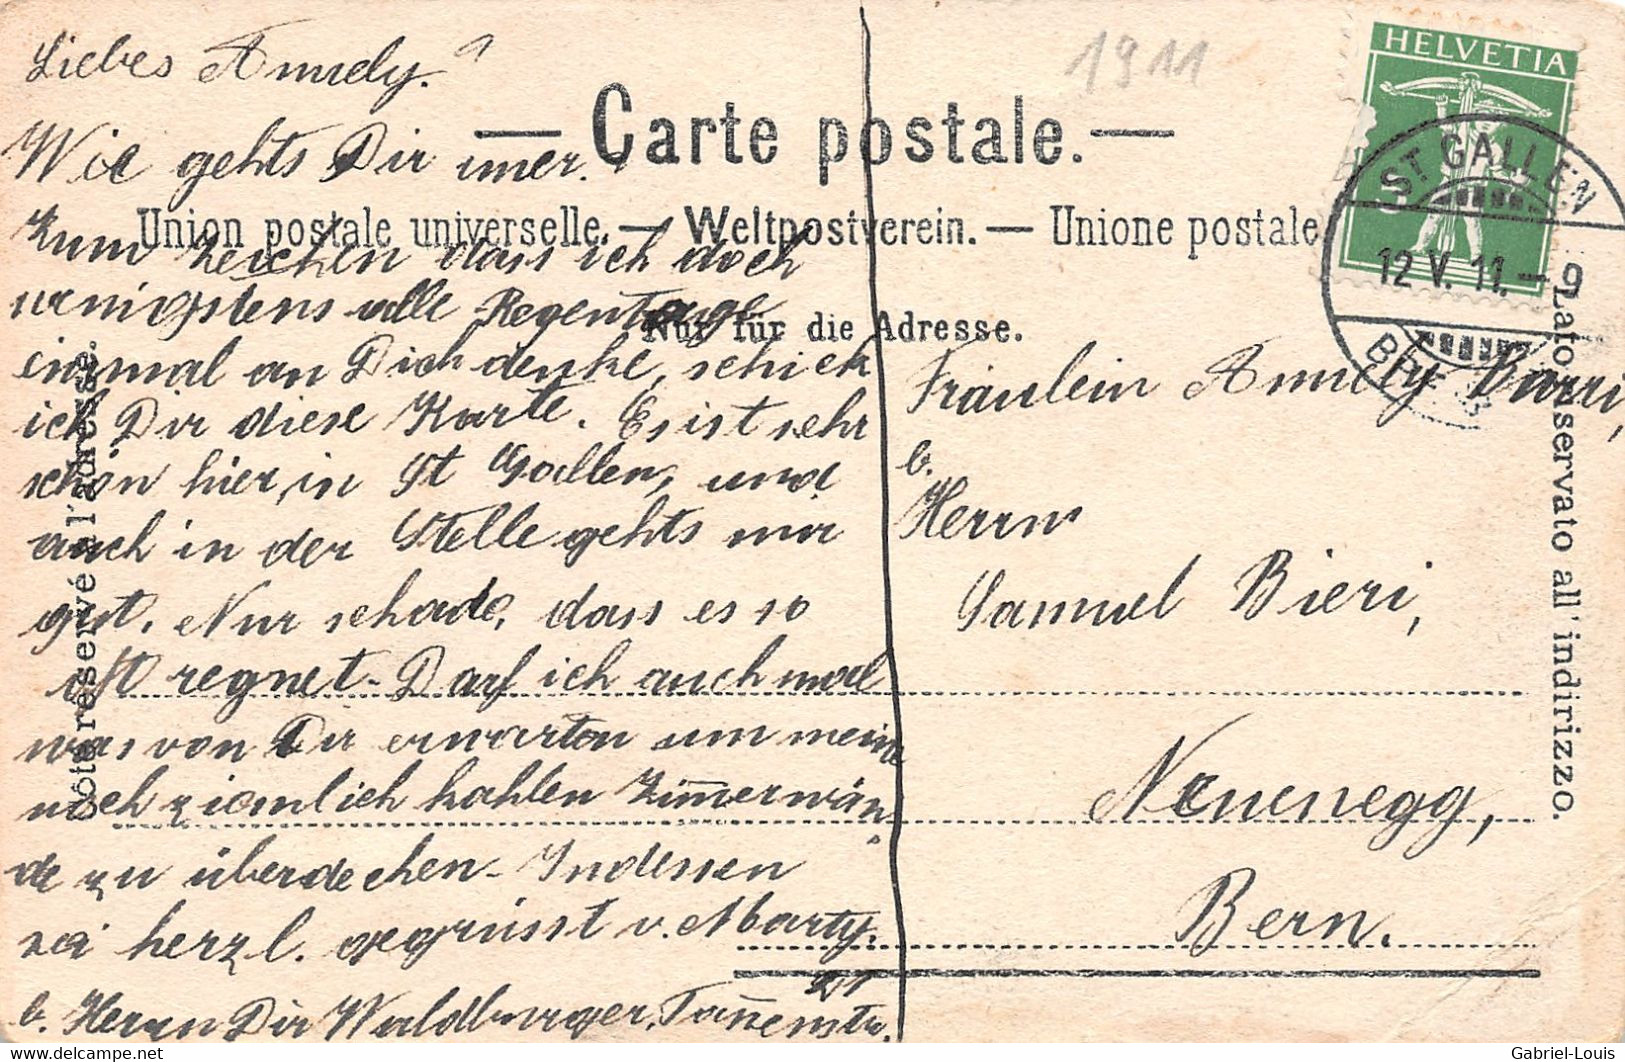 1911
HELVETIA
ST. GALLEN
12.V.11.-9
Carte postale.
Union postale universelle. — Weltpostverein. — Unione postale
Nur für die Adresse.
Côté réservé à l'adresse.
Lato riservato all' indirizzo.
Liebes Annely.
Wie gehts Dir imer.
Zum Zeichen dass ich doch
wenigstens alle Regentage
einmal an Dich denke, schick
ich Dir diese Karte. Es ist sehr
schön hier, in St Gallen, und
auch in der Stelle gehts mir
gut. Nur schade, dass es so
oft regnet. Darf ich auch mal
was von Dir erwarten um meine
noch ziemlich kahlen Zim̅erwän
de zu überdecken. Indessen
sei herzl. gegrüsst v. Marty.
b. Herrn Dir Waldburger. Tan̅enstr.
21
Fräulein Annely
b.
Herrn
Samuel Bieri,
Neuenegg,
Bern.
Gabriel-Louis